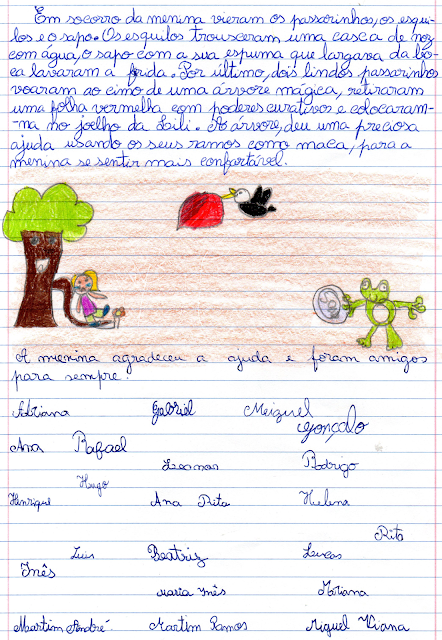 Em socorro da menina vieram os passarinhos, os esqui-
los e o sapo. Os esquilos trouxeram uma casca de noz
com água, o sapo com a sua espuma que largava da bo-
ca lavaram a ferida. Por último, dois lindos passarinhos
voaram ao cimo de uma árvore mágica, retiraram
uma folha vermelha com poderes curativos e colocaram-
-na no joelho da Lili. A árvore, deu uma preciosa
ajuda usando os seus ramos como maca, para a
menina se sentir mais confortável.
A menina agradeceu a ajuda e foram amigos
para sempre.
Adriana Gabriel Meiguel
Gonçalo
Ana Rafael
Leonor Rodrigo
Hugo
Henrique Ana Rita Helena
Rita
Luis Beatriz Lucas
Inês
Maria Inês Mariana
Martim André Martim Ramos Miguel Viana